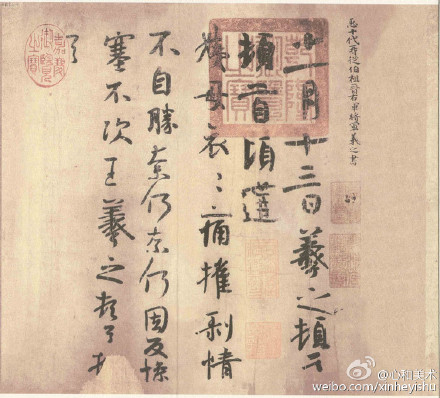 臣十代再從伯祖晉右軍將軍羲之書
十一月十三日羲之頓首
頓首頃遘
姨母哀〻痛摧剝情
不自勝奈何奈何因反慘
塞不次王羲之頓首頓
首
嘉慶御覽之寶
@心和美术
weibo.com/xinheyishu